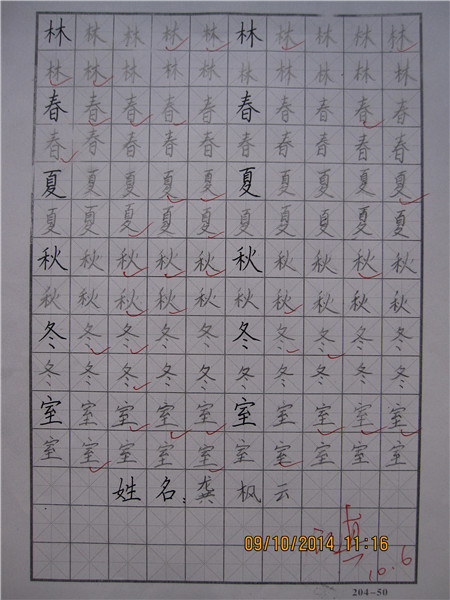 林林林林林林林林林林
林林林林林林林林林林
春春春春春春春春春春
春春春春春春春春春春
夏夏夏夏夏夏夏夏夏夏
夏夏夏夏夏夏夏夏夏夏
秋秋秋秋秋秋秋秋秋秋
秋秋秋秋秋秋秋秋秋秋
冬冬冬冬冬冬冬冬冬冬
冬冬冬冬冬冬冬冬冬冬
室室室室室室室室室室
室室室室室室室室室室
姓名:龚枫云
10.6
09/10/2014 11:16
204-50